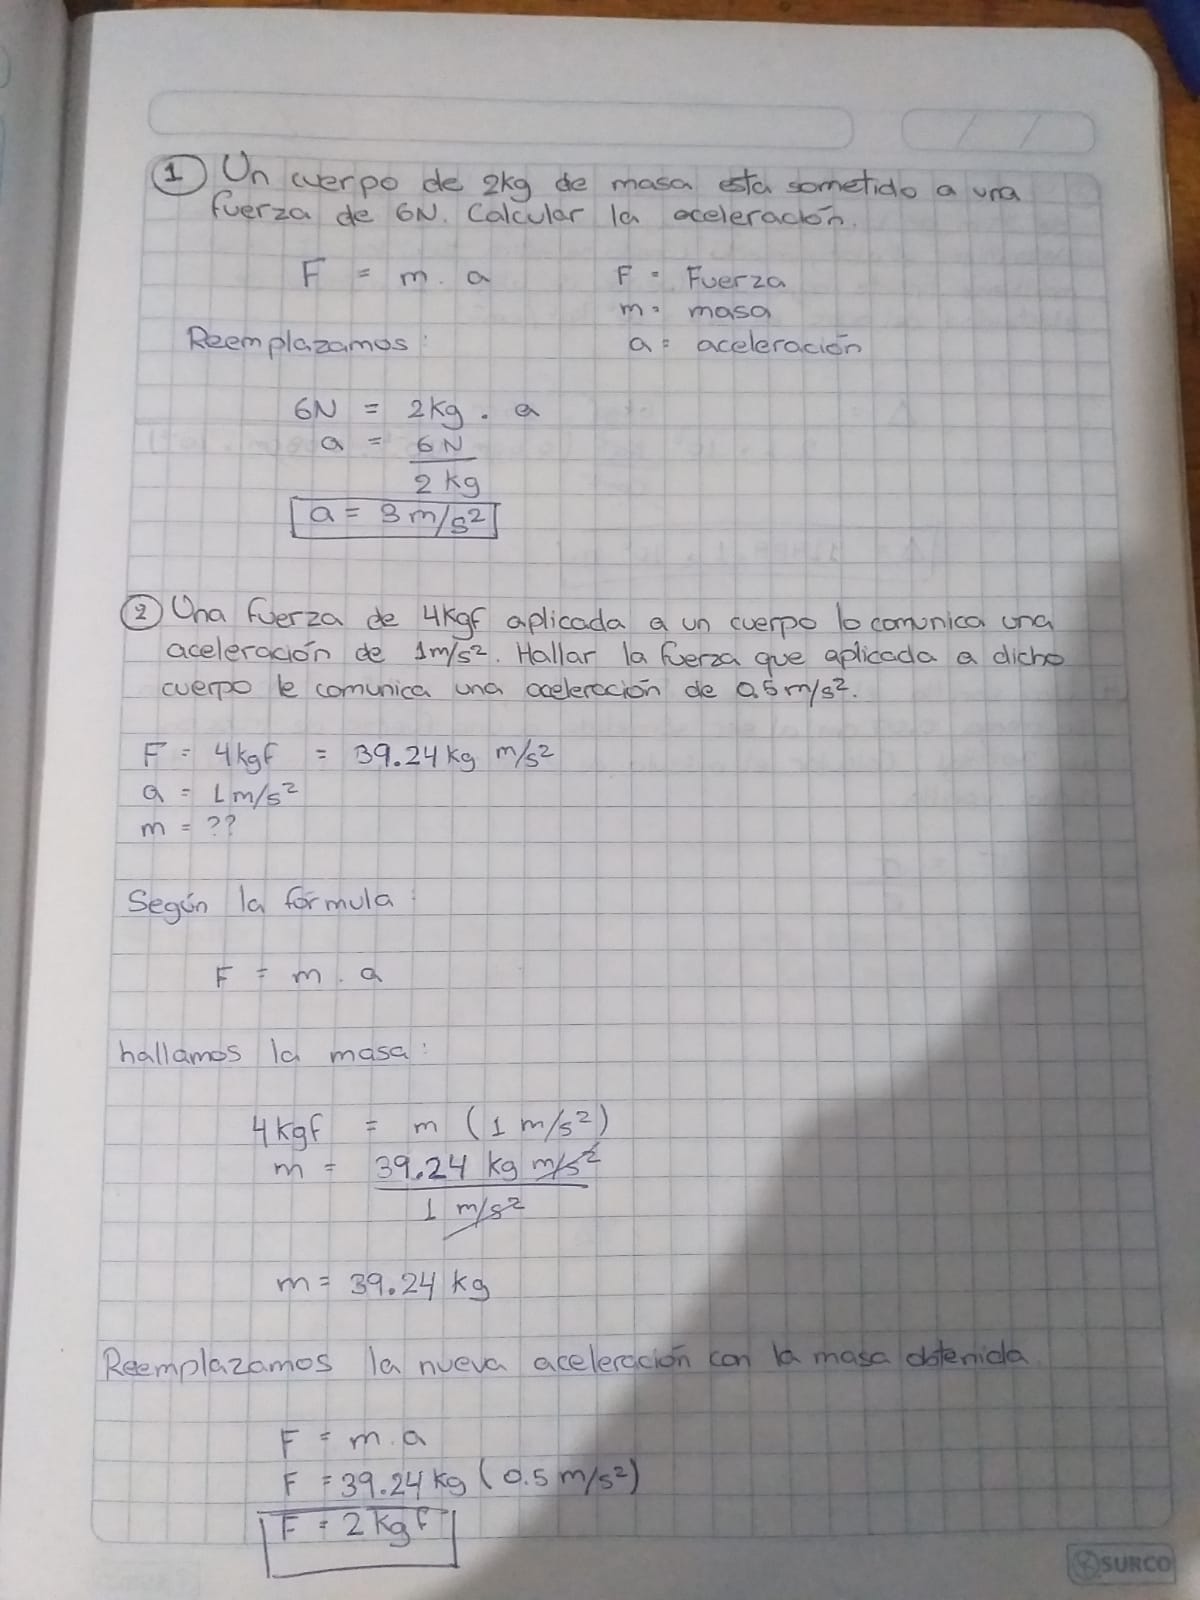 1 Un cuerpo de 2kg de masa esta sometido a una
fuerza de 6N. Calcular la aceleración.
F = m . a
F = Fuerza
m = masa
a = aceleración
Reemplazamos:
6N = 2kg . a
a = 6N
2 kg
a = 3 m/s²
2 Una fuerza de 4kgf aplicada a un cuerpo lo comunica una
aceleración de 1m/s². Hallar la fuerza que aplicada a dicho
cuerpo le comunica una aceleración de 0.5m/s².
F = 4kgf = 39.24 kg m/s²
a = 1 m/s²
m = ??
Según la fórmula:
F = m . a
hallamos la masa:
4kgf = m (1 m/s²)
m = 39.24 kg m/s²
1 m/s²
m = 39.24 kg
Reemplazamos la nueva aceleración con la masa obtenida
F = m . a
F = 39.24 kg (0.5 m/s²)
F = 2 kgf
SURCO